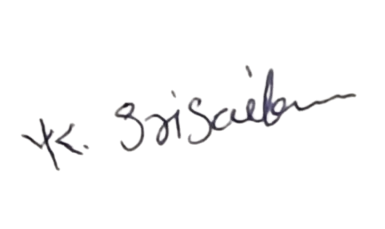 K. Srisailam